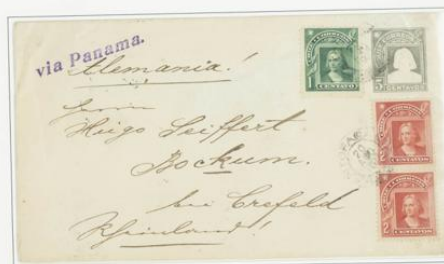 via Panama.
Alemania!
Herrn
Hugo Seiffert
Bockum.
bei Crefeld
Rheinland!
CENTAVO
5 CENTAVOS
2 CENTAVOS
2 CENTAVOS